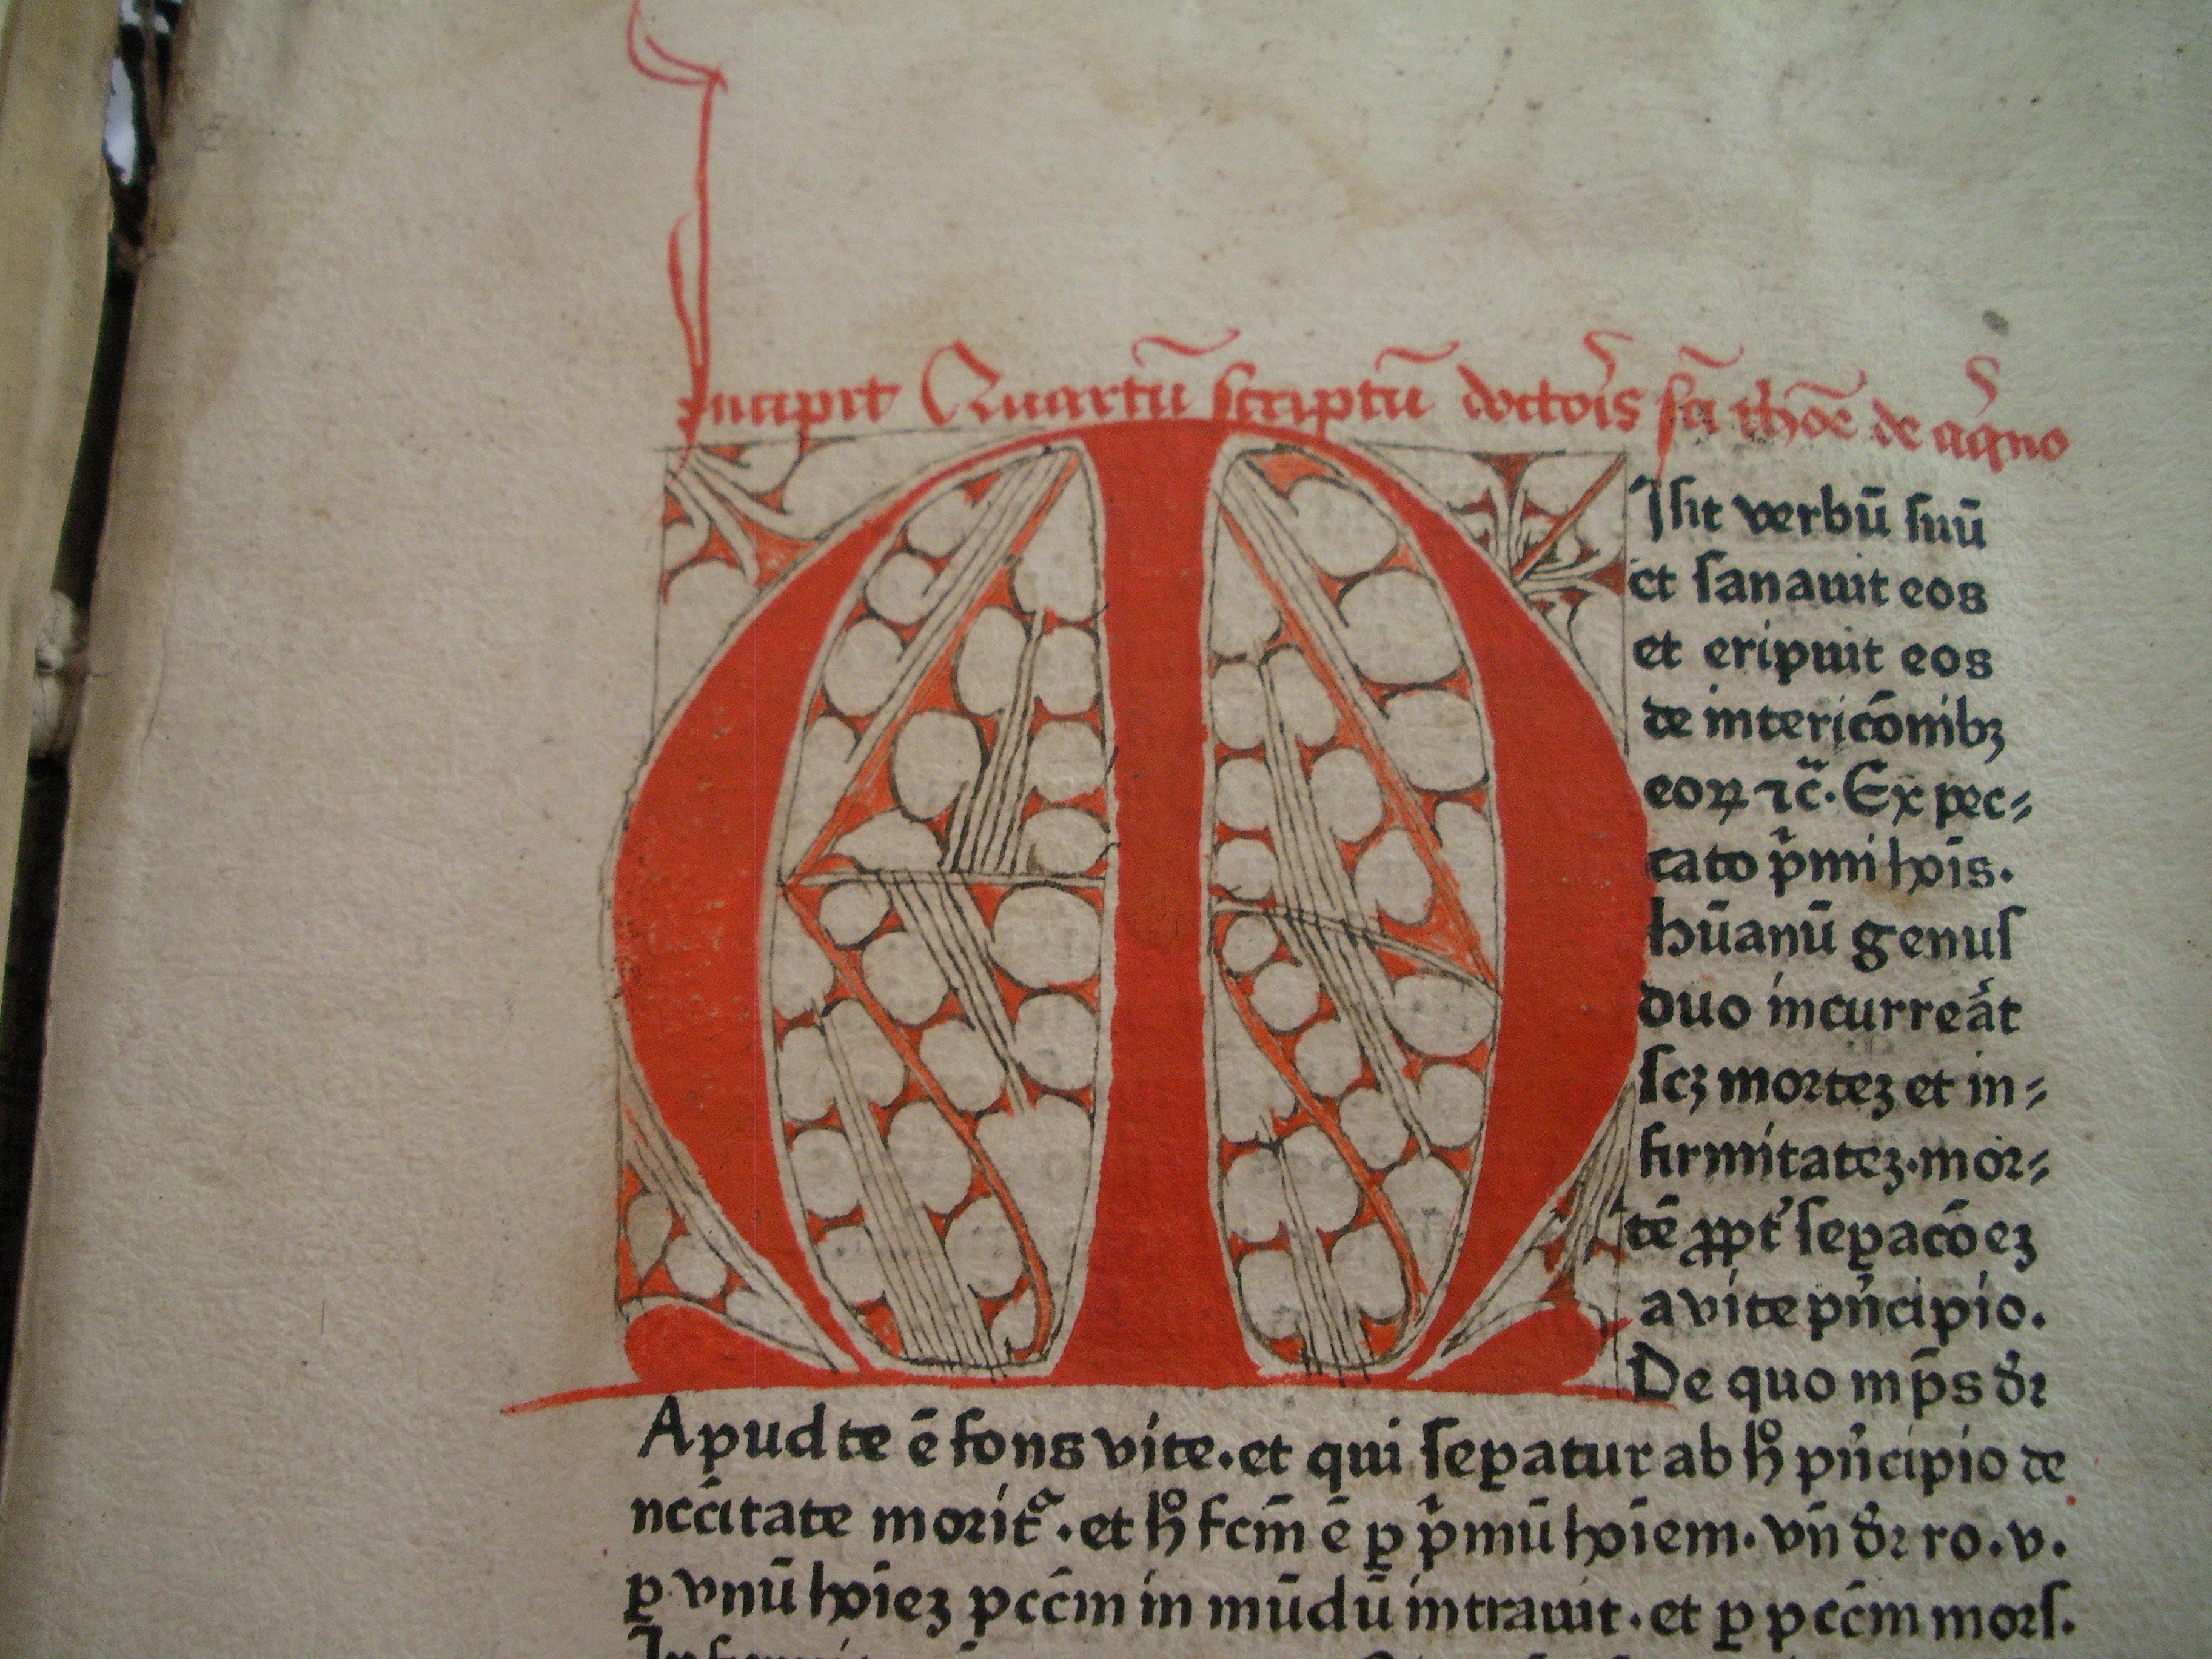 Incipit Quartū scriptū doctoris sā thōe de aqno
M
Jsit verbū suū
et sanauit eos
et eripuit eos
de intericōnibꝫ
eoꝝ ⁊c̄. Ex pec⸗
cato pͥmi hoīs.
hūanū genus
duo incurreāt
scꝫ morteꝫ et in⸗
firmitateꝫ. mor⸗
tē ꝓpt' seꝑacōeꝫ
a vite pn̄cipio.
De quo in p̄s dr̄
Apud te ē fons vite. et qui seꝑatur ab hͦ pn̄cipio de
nccītate moritᷓ. et hͦ fcm̄ ē ꝑ pͥmū hoīem. vn̄ dr̄ ro. v.
ꝑ vnū hoīeꝫ pccm̄ in mūdū intrauit. et ꝑ pccm̄ mors.